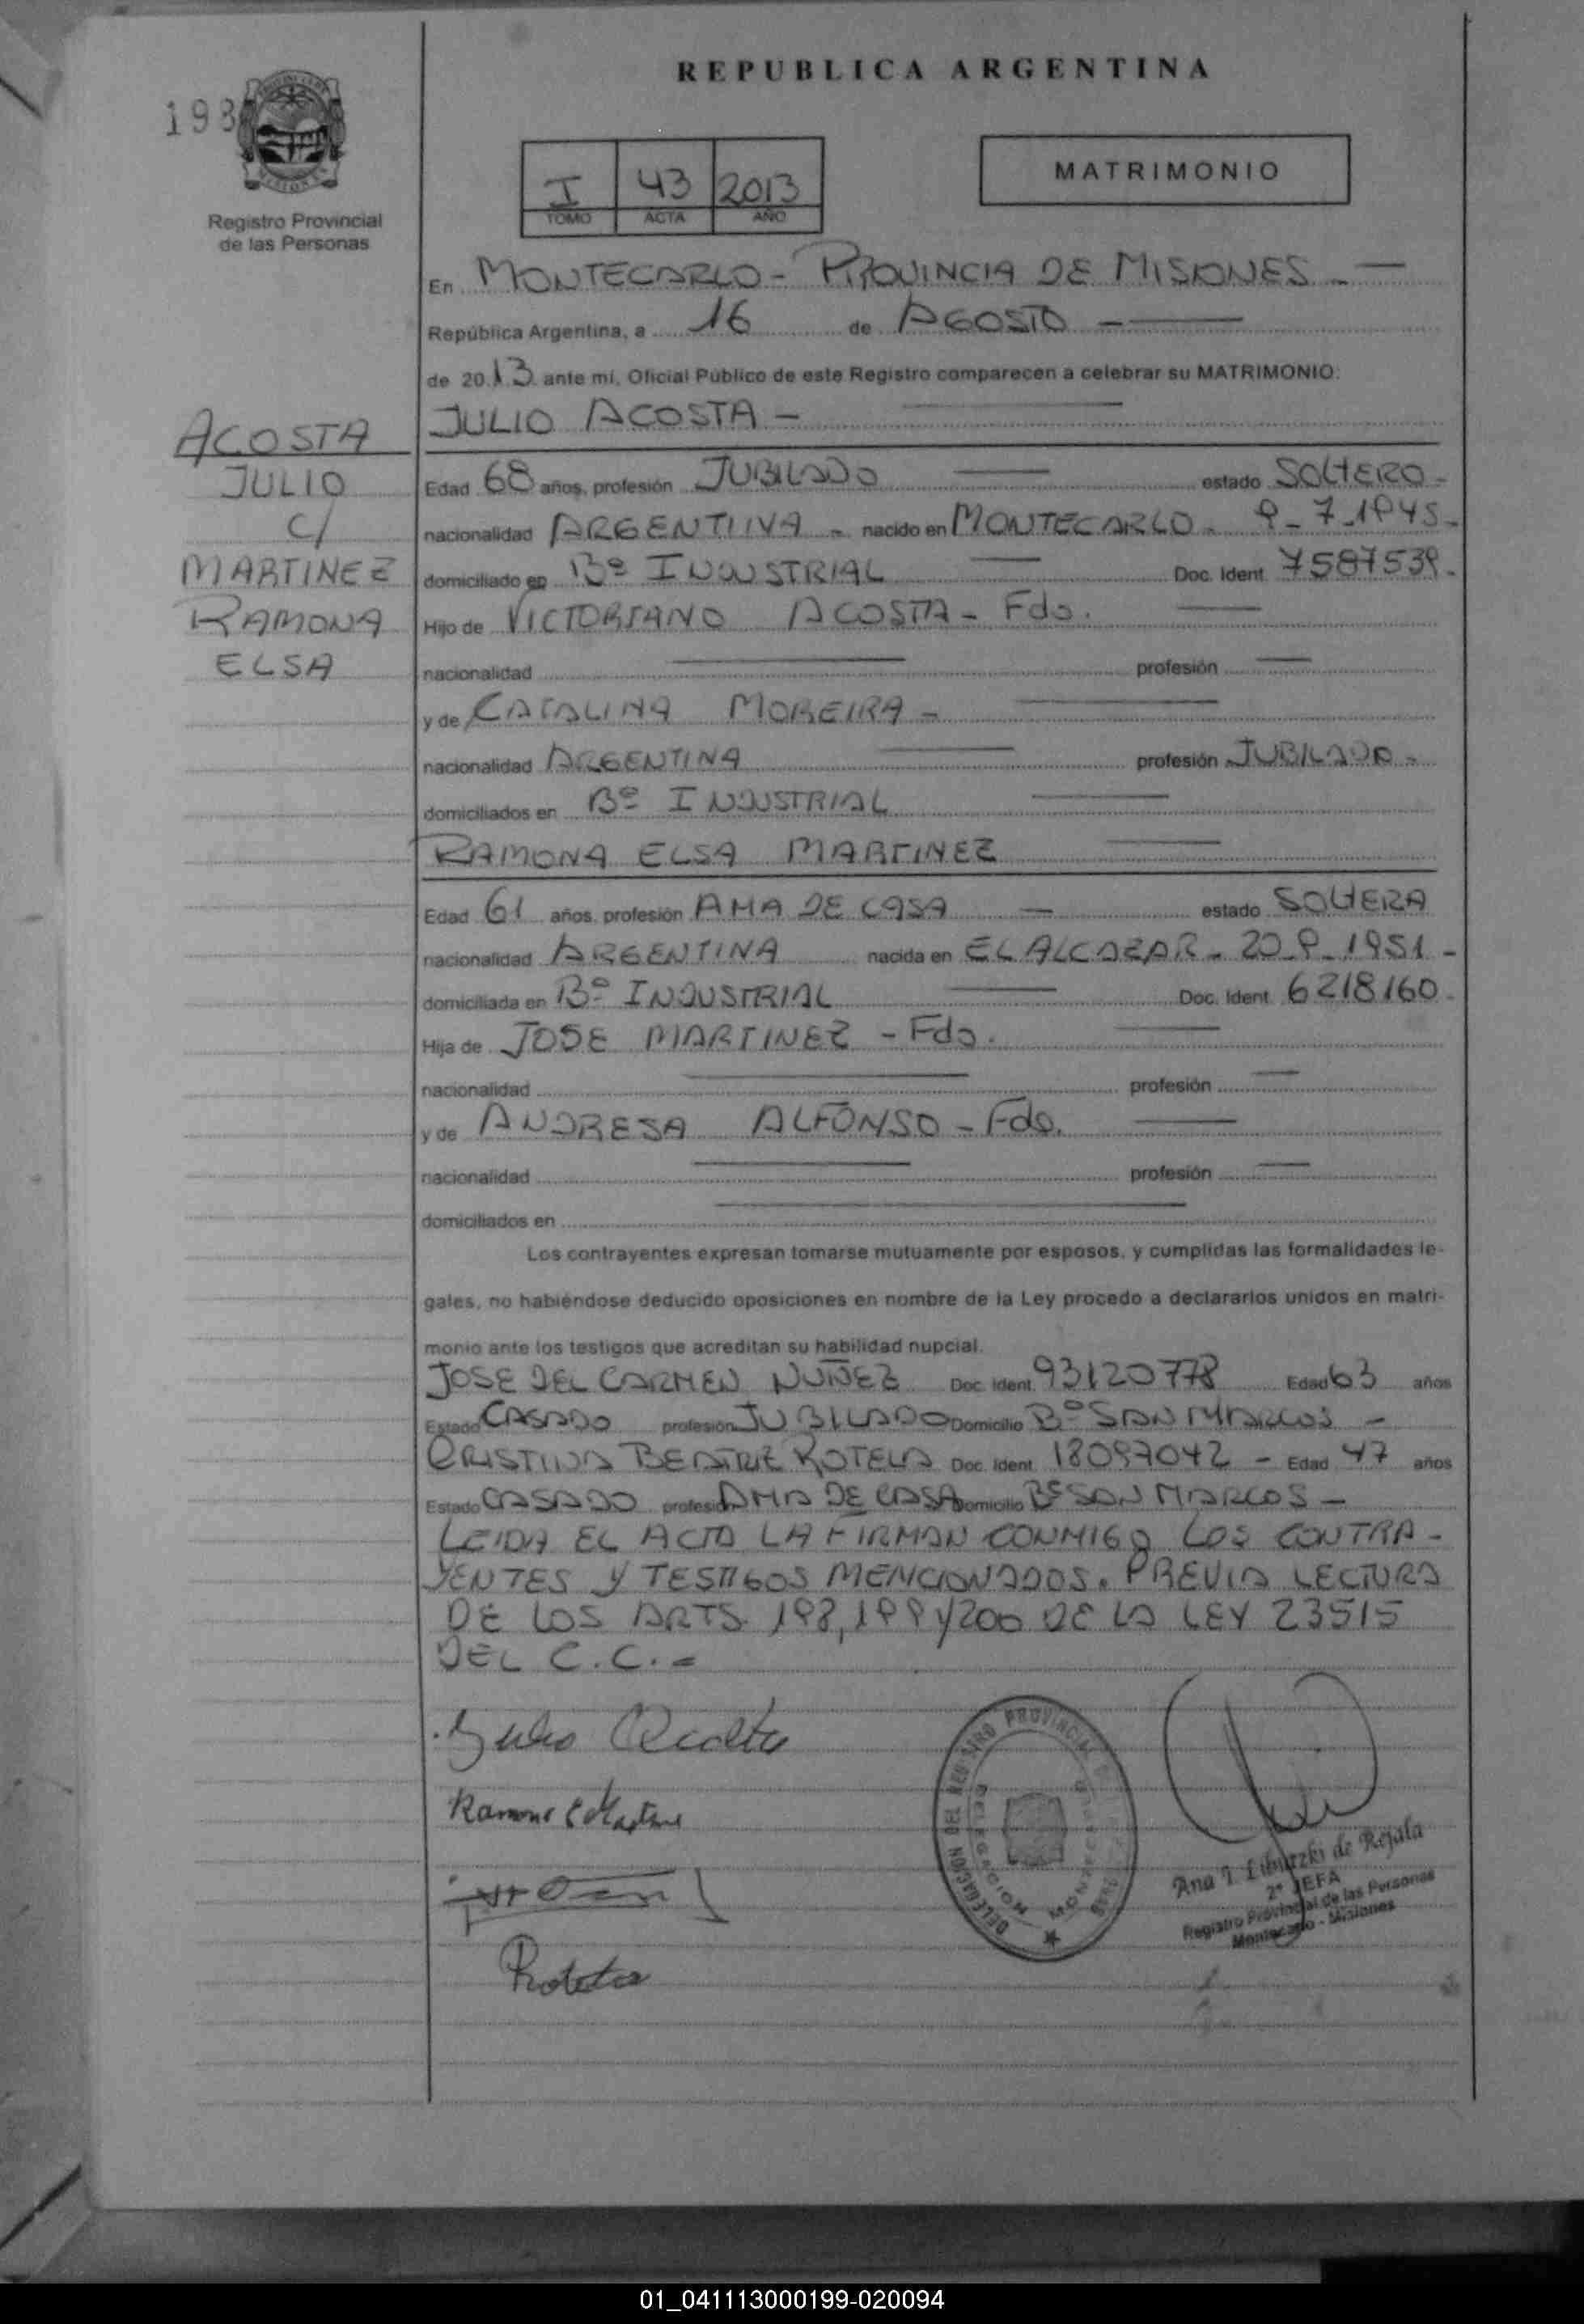 REPUBLICA ARGENTINA
198
Registro Provincial
de las Personas
I 43 2013
TOMO ACTA AÑO
MATRIMONIO
En MONTECARLO - PROVINCIA DE MISIONES -
República Argentina, a 16 de AGOSTO
de 2013 ante mí, Oficial Público de este Registro comparecen a celebrar su MATRIMONIO:
JULIO ACOSTA -
ACOSTA
JULIO
C/
MARTINEZ
RAMONA
ELSA
Edad 68 años, profesión JUBILADO estado SOLTERO -
nacionalidad ARGENTINA - nacido en MONTECARLO - 9-7-1945-
domiciliado en Bº INDUSTRIAL Doc. Ident. 7587539.
Hijo de VICTORIANO ACOSTA - Fdo.
nacionalidad profesión
y de CATALINA MOREIRA -
nacionalidad ARGENTINA profesión JUBILADA -
domiciliados en Bº INDUSTRIAL
RAMONA ELSA MARTINEZ
Edad 61 años, profesión AMA DE CASA estado SOLTERA
nacionalidad ARGENTINA nacida en EL ALCAZAR - 20-9-1951-
domiciliada en Bº INDUSTRIAL Doc. Ident. 6218160.
Hija de JOSE MARTINEZ - Fdo.
nacionalidad profesión
y de ANDRESA ALFONSO - Fdo.
nacionalidad profesión
domiciliados en
Los contrayentes expresan tomarse mutuamente por esposos, y cumplidas las formalidades le-
gales, no habiéndose deducido oposiciones en nombre de la Ley procedo a declararlos unidos en matri-
monio ante los testigos que acreditan su habilidad nupcial.
JOSE DEL CARMEN NUÑEZ Doc. Ident. 93120778 Edad 63 años
Estado CASADO profesión JUBILADO Domicilio Bº SAN MARCOS -
CRISTINA BEATRIZ ROTELA Doc. Ident. 18097042 - Edad 47 años
Estado CASADO profesión AMA DE CASA Domicilio Bº SAN MARCOS -
LEIDA EL ACTA LA FIRMAN CONMIGO LOS CONTRA-
YENTES Y TESTIGOS MENCIONADOS. PREVIA LECTURA
DE LOS ARTS. 198, 199 Y 200 DE LA LEY 23515
DEL C.C.=
Julio Acosta
Ramona E Martine
Rotela
DELEGACION DEL REGISTRO PROVINCIAL
DELEGACION MONTECARLO
Ana I. de Rejala
2º JEFA
Registro Provincial de las Personas
Montecarlo - Misiones
01_041113000199-020094